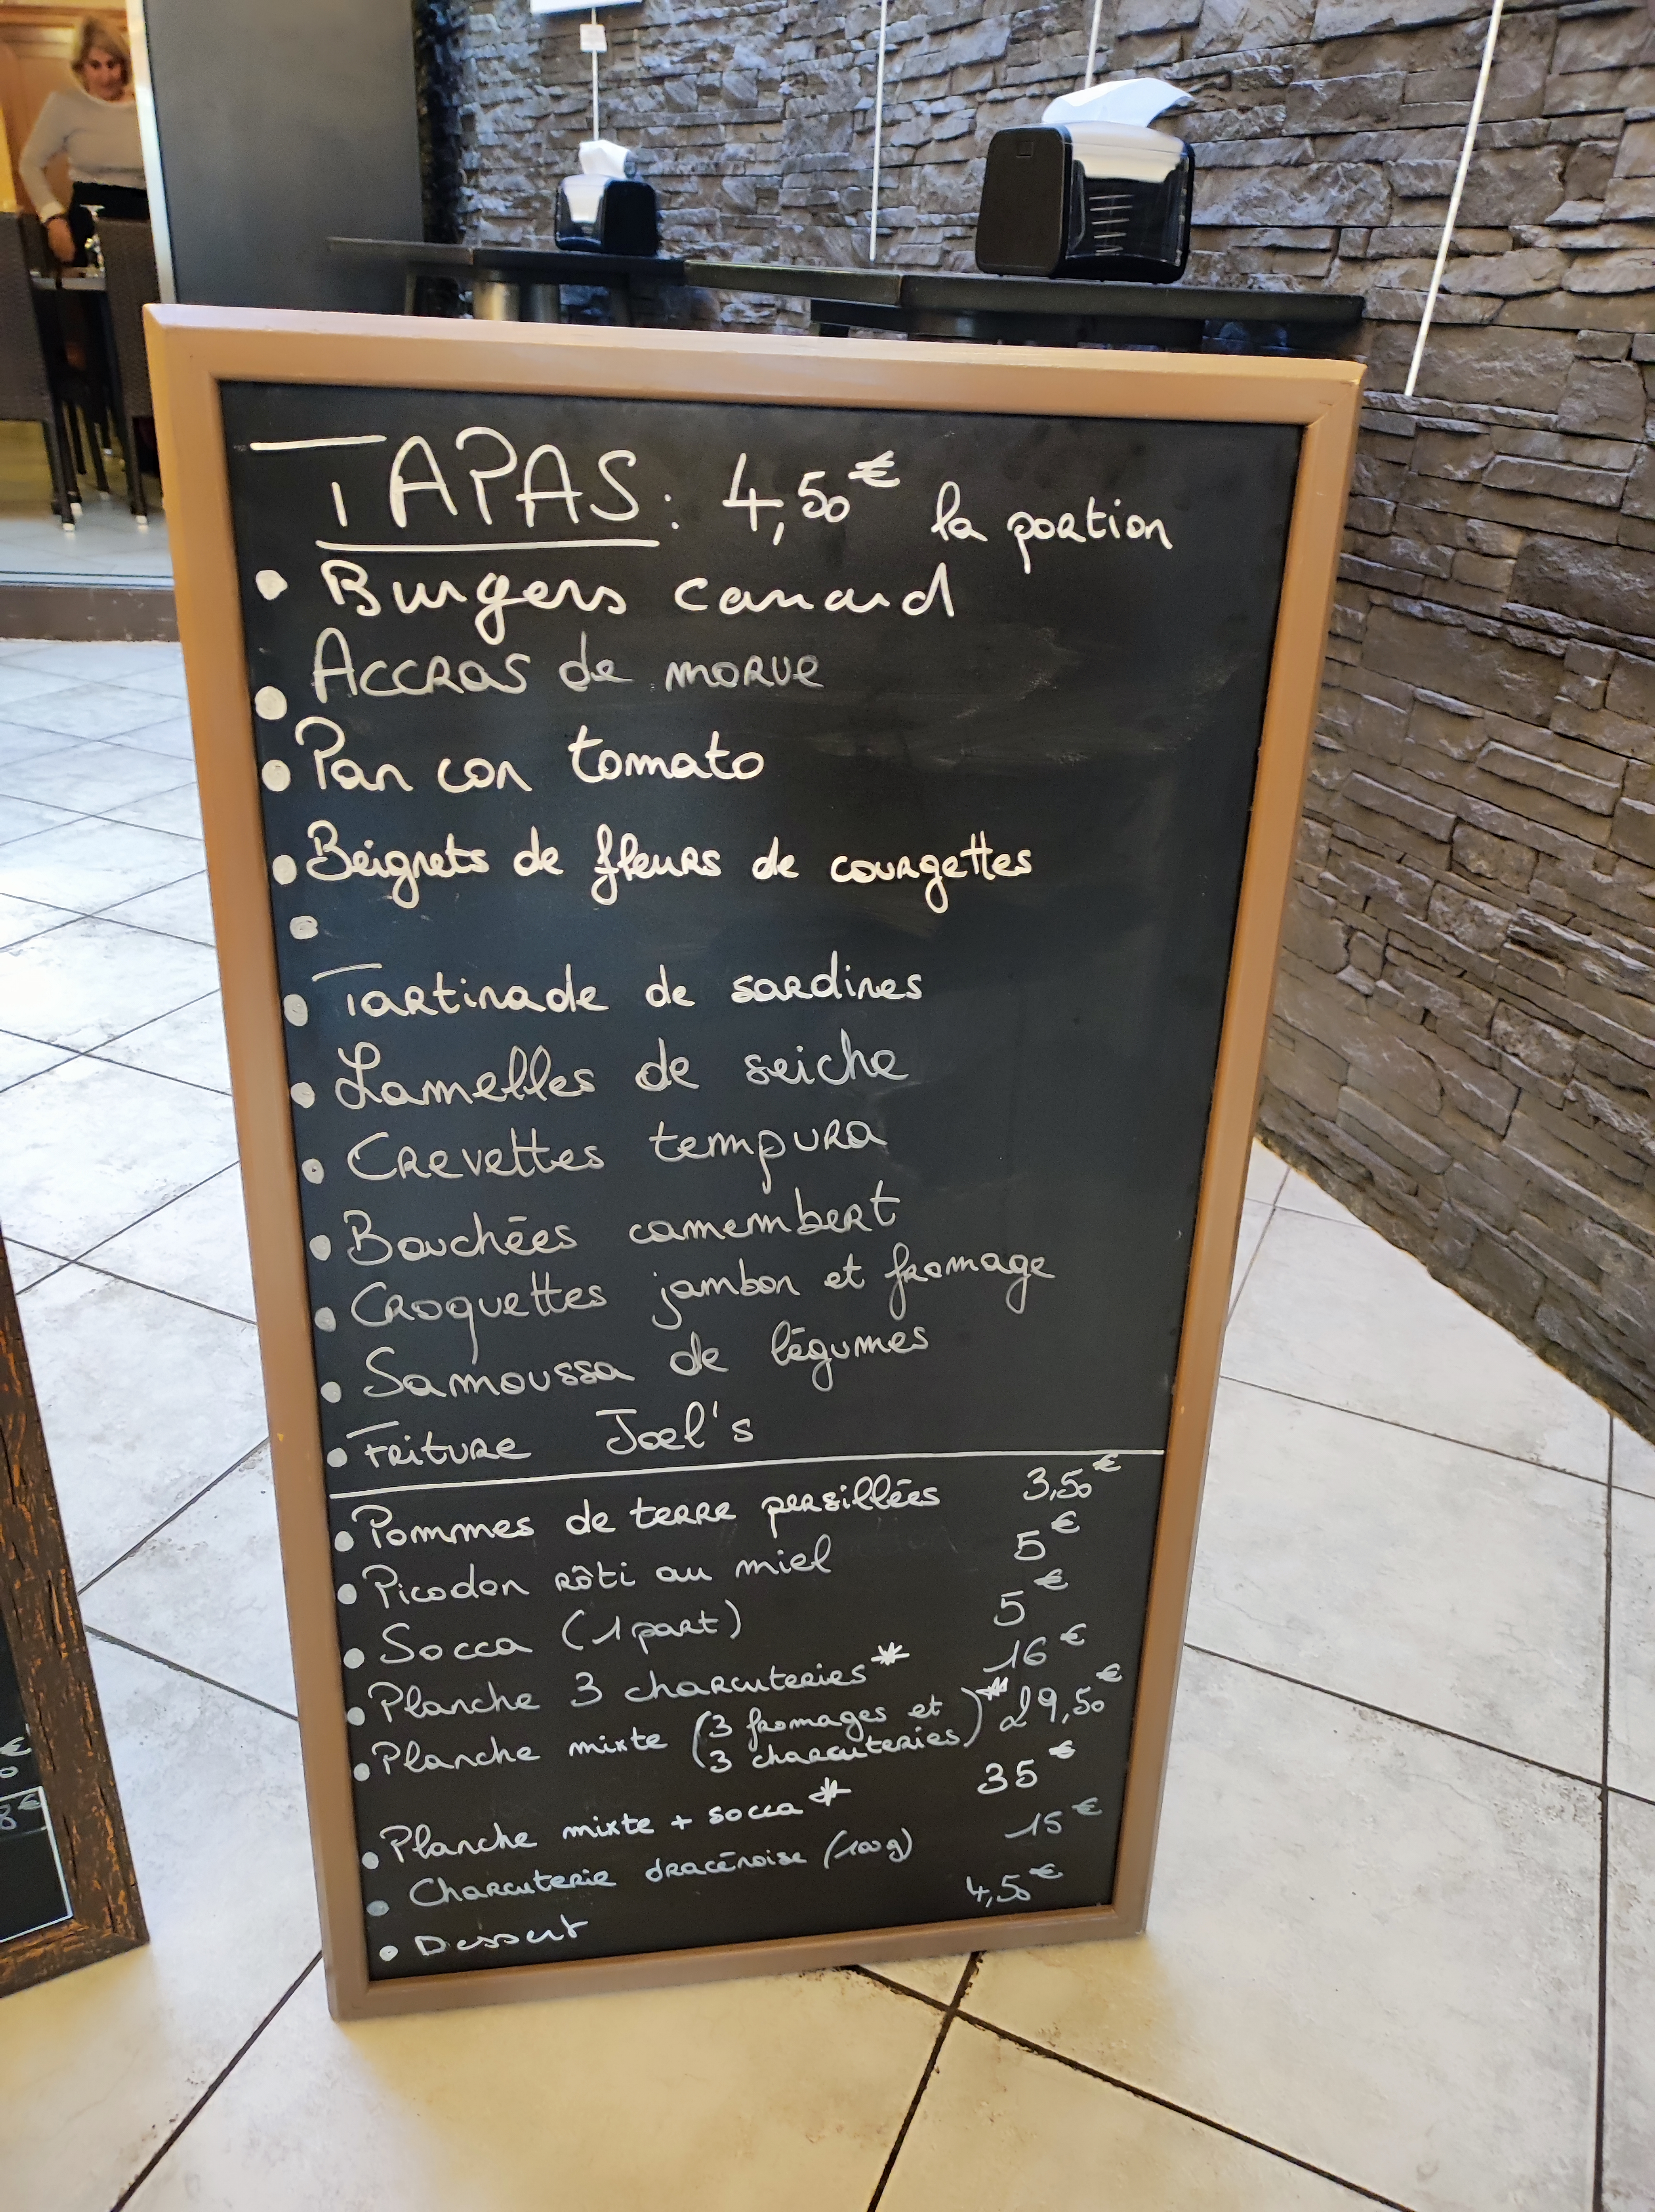 TAPAS : 4,50€ la portion
• Burgers canard
• Accras de morue
• Pan con tomato
• Beignets de fleurs de courgettes
•
• Tartinade de sardines
• Lamelles de seiche
• Crevettes tempura
• Bouchées camembert
• Croquettes jambon et fromage
• Samoussa de légumes
• Friture Joel's
• Pommes de terre persillées 3,50€
• Picodon rôti au miel 5€
• Socca (1 part) 5€
• Planche 3 charcuteries* 16€
• Planche mixte (3 fromages et
3 charcuteries)* 29,50€
• Planche mixte + socca* 35€
• Charcuterie dracénoise (100g) 15€
• Dessert 4,50€